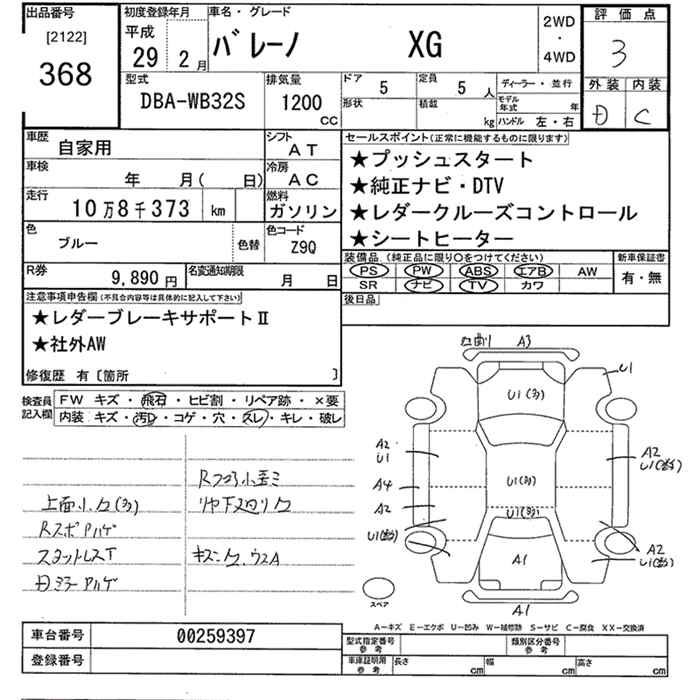 出品番号
[2122]
368
初度登録年月
平成
29 2 月
車名・グレード
バレーノ XG
2WD
・
4WD
評価点
3
外装 内装
D C
型式
DBA-WB32S
排気量
1200
cc
ドア 5
形状
定員 5 人
積載 kg
ディーラー・並行
モデル年式 年
ハンドル 左・右
車歴
自家用
シフト
AT
車検
年 月( 日)
冷房
AC
走行
10万8千373 km
燃料
ガソリン
色
ブルー
色替
色コード
Z9Q
R券
9,890 円
名変通知期限
月 日
セールスポイント(正常に機能するものに限ります)
★プッシュスタート
★純正ナビ・DTV
★レダークルーズコントロール
★シートヒーター
装備品.(純正品に限り○をつけてください)
PS PW ABS エアB AW
SR ナビ TV カワ
新車保証書
有・無
後日品
注意事項申告欄(不具合内容等は具体的に記入して下さい)
★レダーブレーキサポートⅡ
★社外AW
修復歴 有〔箇所 〕
検査員記入欄
FW キズ・飛石・ヒビ割・リペア跡・×要
内装 キズ・汚レ・コゲ・穴・スレ・キレ・破レ
A3
U1(多)
U1
A2
U1
A4
A2
U1(多)
U1(多)
A2
A2
A1
A1
スペア
A－キズ E－エクボ U－凹み W－補修跡 S－サビ C－腐食 XX－交換済
車台番号 00259397
登録番号
型式指定番号
参考
類別区分番号
参考
車庫証明用
参考
長さ cm
幅 cm
高さ cm